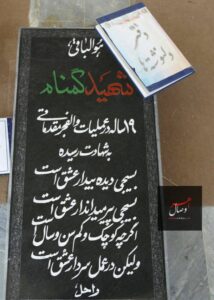 هوالباقی
شهید گمنام
۱۹ ساله در عملیات والفجر مقدماتی
به شهادت رسیده
بسیجی دیده بیدار عشق است
بسیجی پیر میداندار عشق است
اگرچه کوچک و کم سن و سال است
ولیکن در عمل سردار عشق است
دفتر
دلنوشته ها
وصال